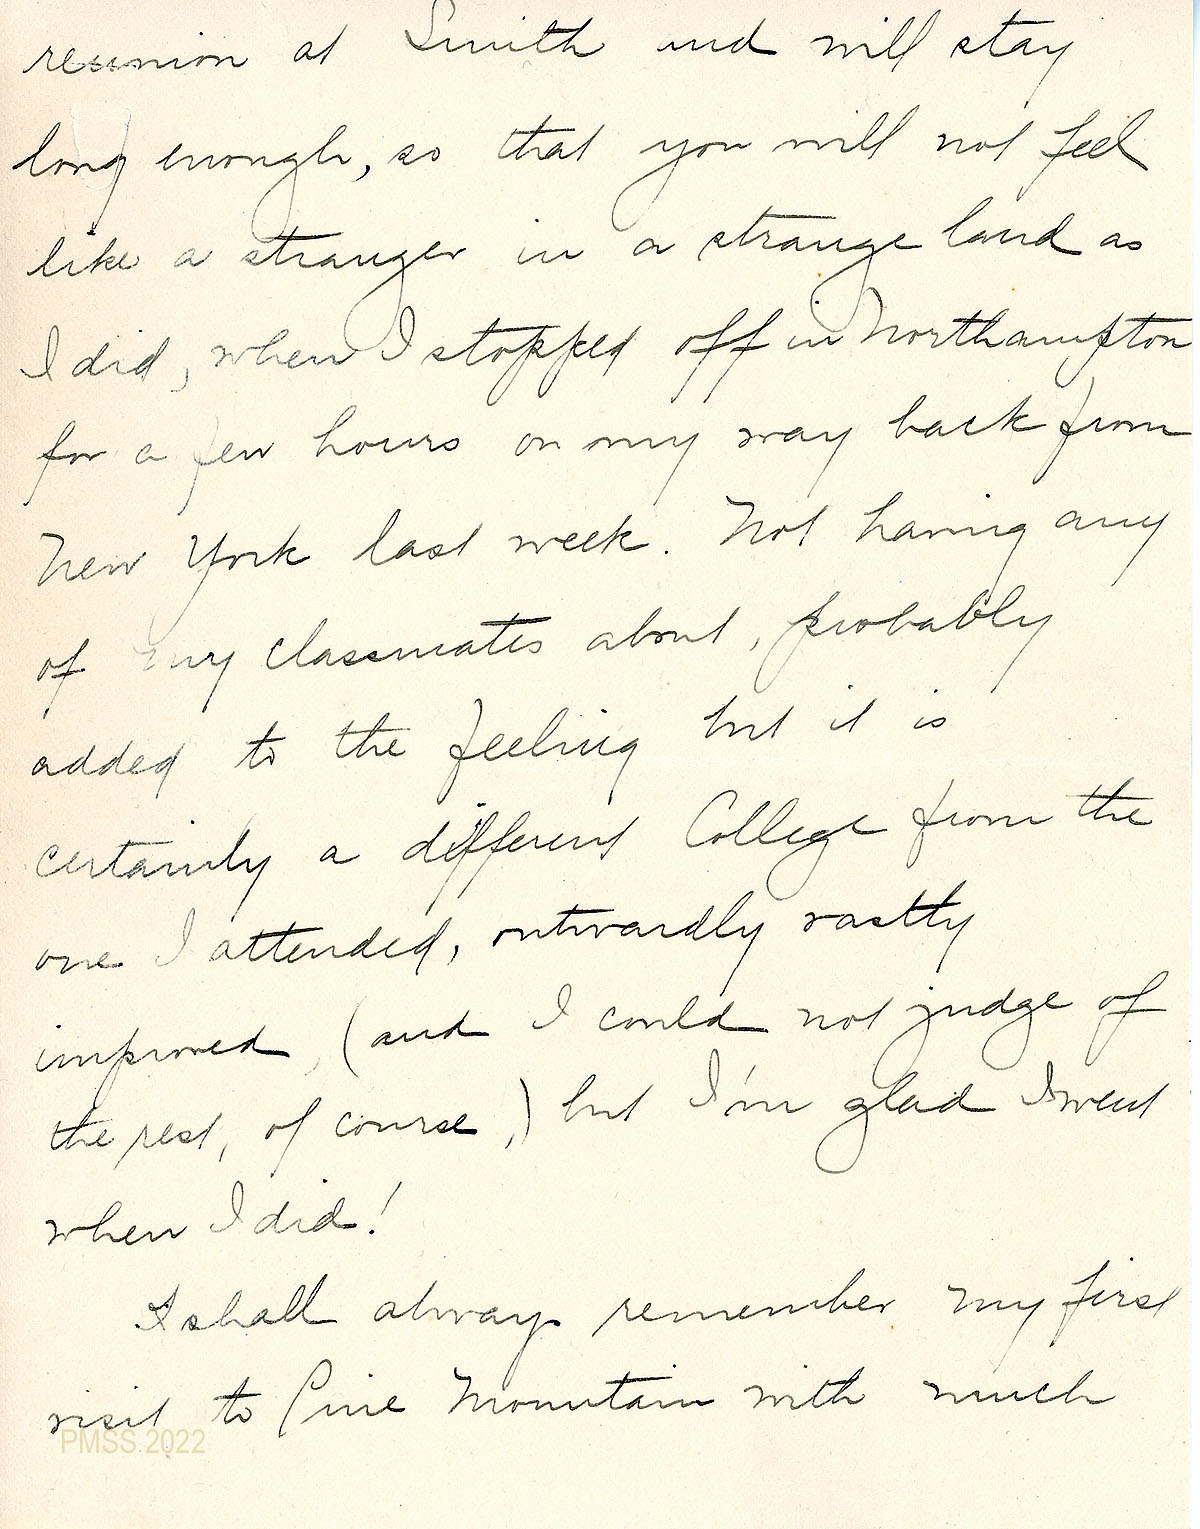 reunion at Smith and will stay
long enough, so that you will not feel
like a stranger in a strange land as
I did, when I stopped off in Northampton
for a few hours on my way back from
New York last week. Not having any
of my classmates about, probably
added to the feeling but it is
certainly a different College from the
one I attended, outwardly vastly
improved, (and I could not judge of
the rest, of course,) but I'm glad I went
when I did!
I shall always remember my first
visit to Pine Mountain with much
PMSS 2022